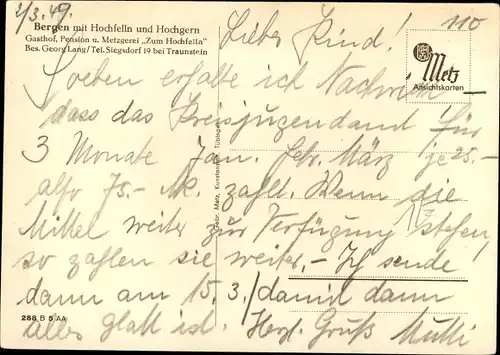 2/3.49.
110
Bergen mit Hochfelln und Hochgern
Gasthof, Pension u. Metzgerei „Zum Hochfelln"
Bes. Georg Lang / Tel. Siegsdorf 19 bei Traunstein
Metz
Ansichtskarten
Gebr. Metz, Tübingen
Liebes Kind!
Soeben erhalte ich Nachricht
dass das Kreisjugendamt für
3 Monate Jan. Febr. März je 25.-
also 75.- Mk. zahlt. Wenn die
Mittel weiter zur Verfügung stehen,
so zahlen sie weiter. - Ich sende
dann am 15.3. damit dann
alles glatt ist. Herzl. Gruß Mutti
288 B 5 AA